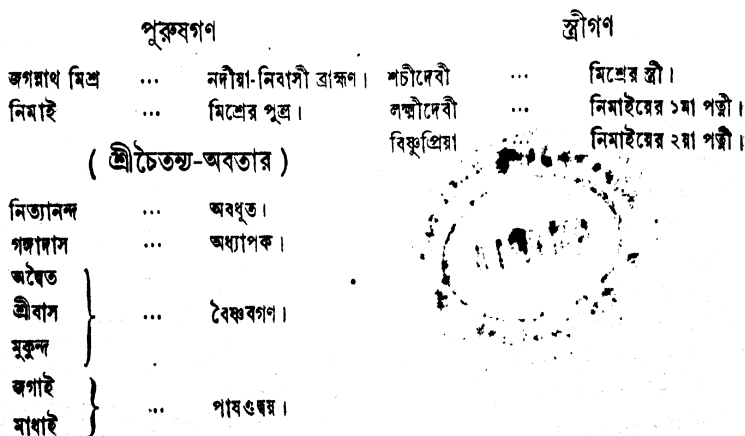 পুরুষগণ
জগন্নাথ মিশ্র ... নদীয়া-নিবাসী ব্রাহ্মণ।
নিমাই ... মিশ্রের পুত্র।
( শ্রীচৈতন্য-অবতার )
নিত্যানন্দ ... অবধূত।
গঙ্গাদাস ... অধ্যাপক।
অদ্বৈত
শ্রীবাস } ... বৈষ্ণবগণ।
মুকুন্দ
জগাই
মাধাই } ... পাষণ্ডদ্বয়।
স্ত্রীগণ
শচীদেবী ... মিশ্রের স্ত্রী।
লক্ষ্মীদেবী ... নিমাইয়ের ১মা পত্নী।
বিষ্ণুপ্রিয়া ... নিমাইয়ের ২য়া পত্নী।